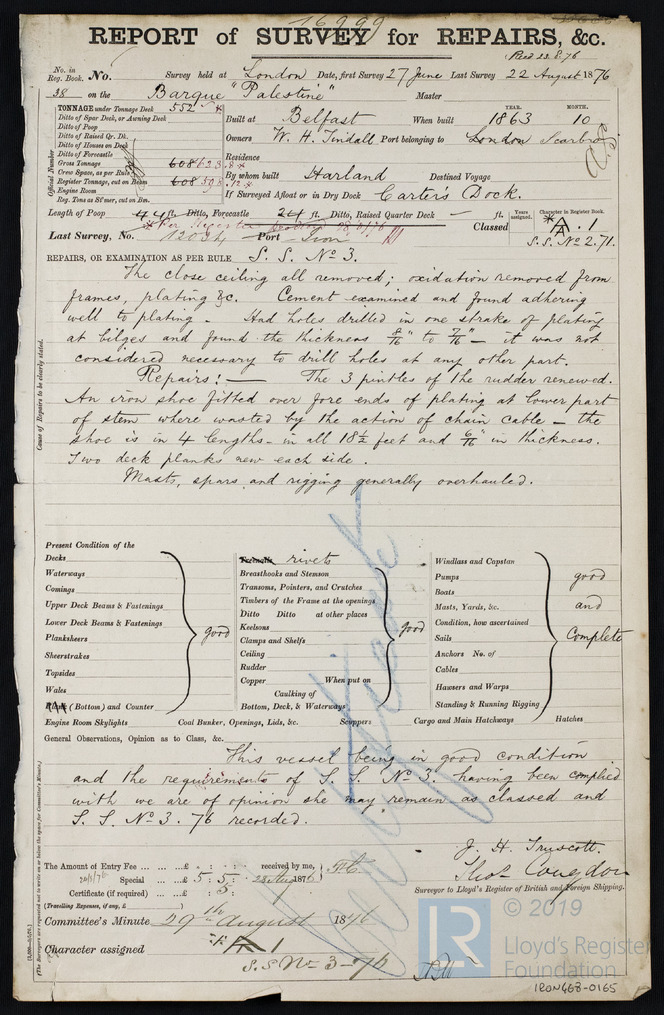 16999
REPORT of SURVEY for REPAIRS, &c.
Recd 23.8.76
No. in Reg. Book. No. Survey held at London Date, first Survey 27 June Last Survey 22 August 1876
38 on the Barque "Palestine" Master
TONNAGE under Tonnage Deck 552
Ditto of Spar Deck, or Awning Deck
Ditto of Poop
Ditto of Raised Qr. Dk.
Ditto of Houses on Deck
Ditto of Forecastle
Gross Tonnage 608 623.8
Crew Space, as per Rule
Register Tonnage, cut on Beam 608 598.12
Engine Room
Reg. Tons as St'mer, cut on Bm.
Official Number
YEAR. MONTH.
Built at Belfast When built 1863 10
Owners W. H. Tindall Port belonging to London Scarbro
Residence
By whom built Harland Destined Voyage
If Surveyed Afloat or in Dry Dock Carter's Dock.
Length of Poop 44 ft. Ditto, Forecastle 24 ft. Ditto, Raised Quarter Deck — ft.
Classed Years assigned. Character in Register Book.
A.1
S.S. No 2.71.
Last Survey, No. 12034 Port Iron
REPAIRS, OR EXAMINATION AS PER RULE S. S. No 3.
Cause of Repairs to be clearly stated.
The close ceiling all removed; oxidation removed from
frames, plating &c. Cement examined and found adhering
well to plating - Had holes drilled in one strake of plating
at bilges and found the thickness 8/16" to 7/16" — it was not
considered necessary to drill holes at any other part.
Repairs: — The 3 pintles of the rudder renewed.
An iron shoe fitted over fore ends of plating at lower part
of stem where wasted by the action of chain cable — the
shoe is in 4 lengths - in all 18½ feet and 6/16" in thickness.
Two deck planks new each side.
Masts, spars and rigging generally overhauled.
Present Condition of the
Decks
Waterways
Comings
Upper Deck Beams & Fastenings
Lower Deck Beams & Fastenings
Planksheers
Sheerstrakes
Topsides
Wales
(Bottom) and Counter
good
Treenails rivets
Breasthooks and Stemson
Transoms, Pointers, and Crutches
Timbers of the Frame at the openings
Ditto Ditto at other places
Keelsons
Clamps and Shelfs
Ceiling
Rudder
Copper When put on
Caulking of
Bottom, Deck, & Waterways
good
Windlass and Capstan
Pumps
Boats
Masts, Yards, &c.
Condition, how ascertained
Sails
Anchors No. of
Cables
Hawsers and Warps
Standing & Running Rigging
good
and
Complete
Engine Room Skylights Coal Bunker, Openings, Lids, &c. Scuppers Cargo and Main Hatchways Hatches
General Observations, Opinion as to Class, &c.
This vessel being in good condition
and the requirements of S. S. No 3. having been complied
with we are of opinion she may remain as classed and
S. S. No 3. 76 recorded.
J. H. Truscott.
Thos Congdon
Surveyor to Lloyd's Register of British and Foreign Shipping.
The Amount of Entry Fee ... £ : : received by me,
Special ... £ 5 : 5 : 23 Aug 1876
Certificate (if required) ... £ : 5 :
(Travelling Expenses, if any, £ )
Committee's Minute 29th August 1876
Character assigned A 1
S.S No 3 - 76
(The Surveyors are requested not to write on or below the space for Committee's Minute.)
© 2019
LR
Lloyd's Register
Foundation
IRON468-0165